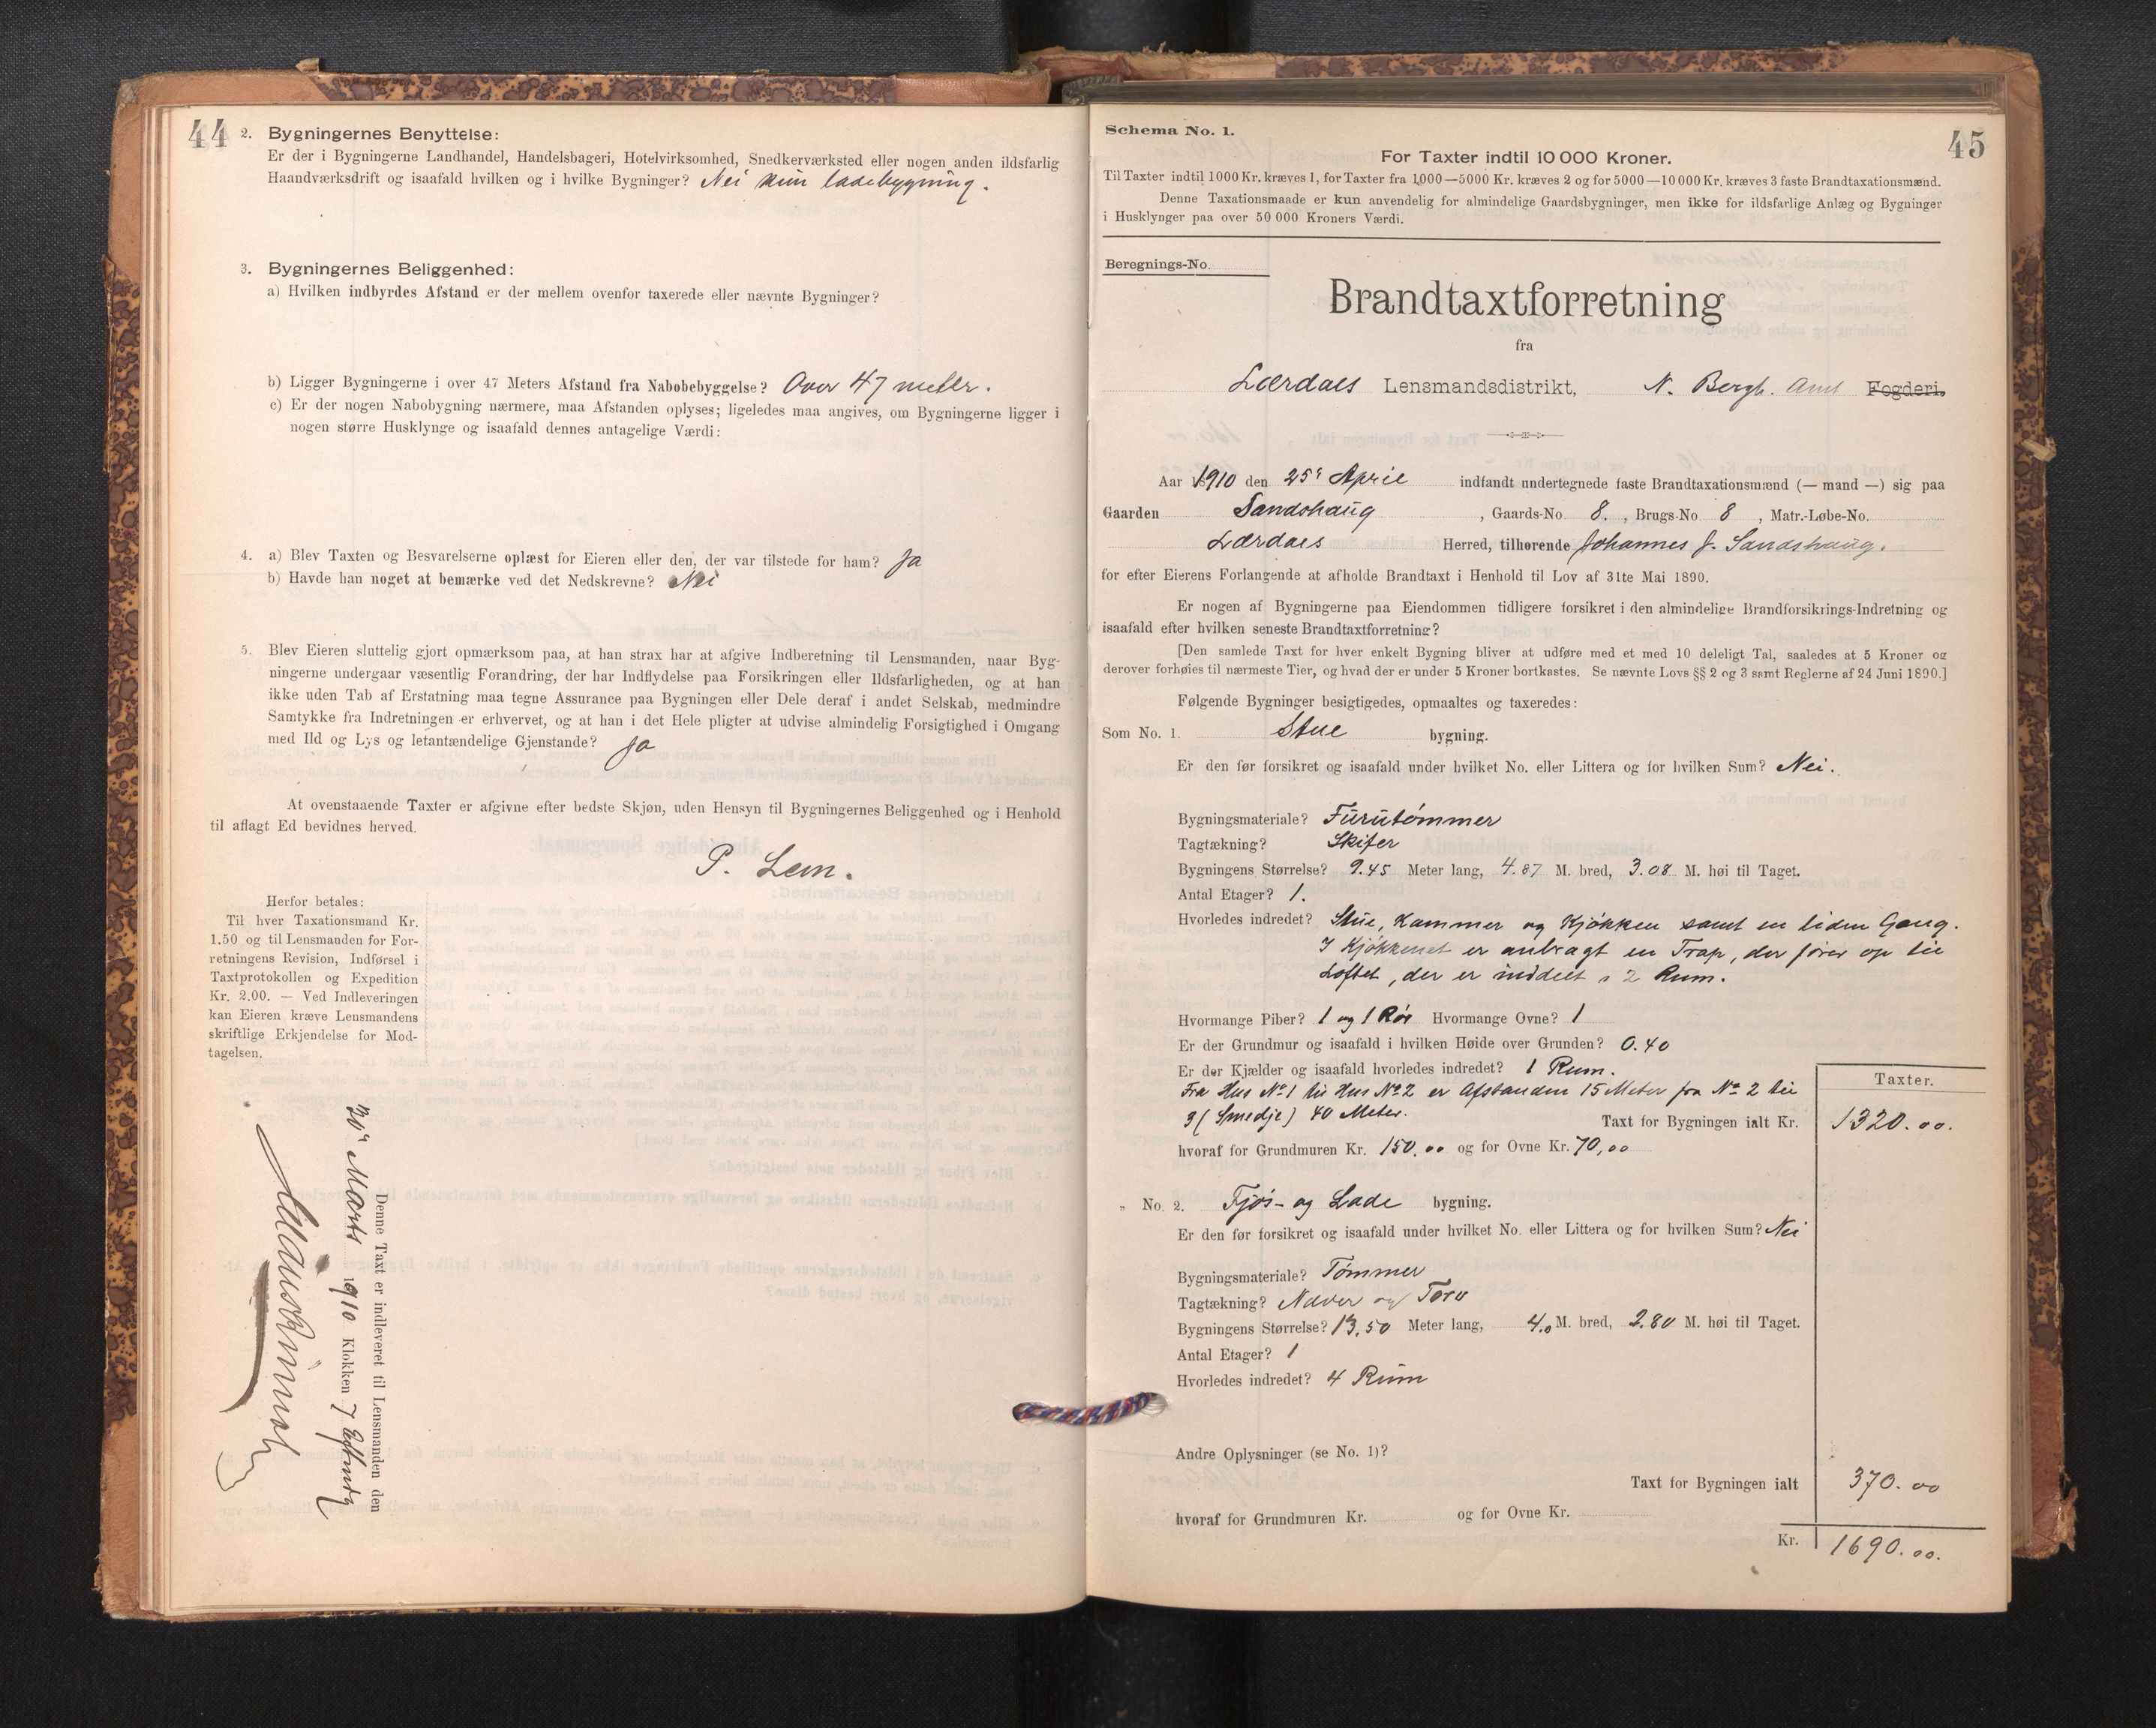 44
2. Bygningernes Benyttelse:
Er der i Bygningerne Landhandel, Handelsbageri, Hotelvirksomhed, Snedkerværksted eller nogen anden ildsfarlig
Haandværksdrift og isaafald hvilken og i hvilke Bygninger? Nei kun ladebygning.
3. Bygningernes Beliggenhed:
a) Hvilken indbyrdes Afstand er der mellem ovenfor taxerede eller nævnte Bygninger?
b) Ligger Bygningerne i over 47 Meters Afstand fra Nabobebyggelse? Over 47 meter.
c) Er der nogen Nabobygning nærmere, maa Afstanden oplyses; ligeledes maa angives, om Bygningerne ligger i
nogen større Husklynge og isaafald dennes antagelige Værdi:
4. a) Blev Taxten og Besvarelserne oplæst for Eieren eller den, der var tilstede for ham? Ja
b) Havde han noget at bemærke ved det Nedskrevne? Nei
5. Blev Eieren sluttelig gjort opmærksom paa, at han strax har at afgive Indberetning til Lensmanden, naar Byg-
ningerne undergaar væsentlig Forandring, der har Indflydelse paa Forsikringen eller Ildsfarligheden, og at han
ikke uden Tab af Erstatning maa tegne Assurance paa Bygningen eller Dele deraf i andet Selskab, medmindre
Samtykke fra Indretningen er erhvervet, og at han i det Hele pligter at udvise almindelig Forsigtighed i Omgang
med Ild og Lys og letantændelige Gjenstande? Ja
At ovenstaaende Taxter er afgivne efter bedste Skjøn, uden Hensyn til Bygningernes Beliggenhed og i Henhold
til aflagt Ed bevidnes herved.
P. Lem.
Herfor betales:
Til hver Taxationsmand Kr.
1.50 og til Lensmanden for For-
retningens Revision, Indførsel i
Taxtprotokollen og Expedition
Kr. 2.00. — Ved Indleveringen
kan Eieren kræve Lensmandens
skriftlige Erkjendelse for Mod-
tagelsen.
Denne Taxt er indleveret til Lensmanden den
30' Marts 1910 Klokken 7 Eftmidg
Schema No. 1.
45
For Taxter indtil 10 000 Kroner.
Til Taxter indtil 1000 Kr. kræves 1, for Taxter fra 1000—5000 Kr. kræves 2 og for 5000—10000 Kr. kræves 3 faste Brandtaxationsmænd.
Denne Taxationsmaade er kun anvendelig for almindelige Gaardsbygninger, men ikke for ildsfarlige Anlæg og Bygninger
i Husklynger paa over 50 000 Kroners Værdi.
Beregnings-No.
Brandtaxtforretning
fra
Lærdals Lensmandsdistrikt, N. Bergh. Amt Fogderi.
Aar 1910 den 25' April indfandt undertegnede faste Brandtaxationsmænd (— mand —) sig paa
Gaarden Sandshaug, Gaards-No. 8., Brugs-No 8, Matr.-Løbe-No.
Lærdals Herred, tilhørende Johannes J. Sandshaug.
for efter Eierens Forlangende at afholde Brandtaxt i Henhold til Lov af 31te Mai 1890.
Er nogen af Bygningerne paa Eiendommen tidligere forsikret i den almindelige Brandforsikrings-Indretning og
isaafald efter hvilken seneste Brandtaxtforretning?
[Den samlede Taxt for hver enkelt Bygning bliver at udføre med et med 10 deleligt Tal, saaledes at 5 Kroner og
derover forhøies til nærmeste Tier, og hvad der er under 5 Kroner bortkastes. Se nævnte Lovs §§ 2 og 3 samt Reglerne af 24 Juni 1890.]
Følgende Bygninger besigtigedes, opmaaltes og taxeredes:
Som No. 1. Stue bygning.
Er den før forsikret og isaafald under hvilket No. eller Littera og for hvilken Sum? Nei.
Bygningsmateriale? Furutømmer
Tagtækning? Skifer
Bygningens Størrelse? 9.45 Meter lang, 4.87 M. bred, 3.08 M. høi til Taget.
Antal Etager? 1.
Hvorledes indredet? Stue, Kammer og Kjøkken samt en liden Gang.
I Kjøkkenet er anbragt en Trap, der fører op til
Loftet, der er inddelt i 2 Rum.
Hvormange Piber? 1 og 1 Rør Hvormange Ovne? 1
Er der Grundmur og isaafald i hvilken Høide over Grunden? 0.40
Er der Kjælder og isaafald hvorledes indredet? 1 Rum.
Taxter.
Fra Hus No 1 til Hus No 2 er Afstanden 15 Meter fra No 2 til
3 (Smedje) 40 Meter.
Taxt for Bygningen ialt Kr. 1320.00.
hvoraf for Grundmuren Kr. 150.00 og for Ovne Kr. 70,00
„ No. 2. Fjøs- og Lade bygning.
Er den før forsikret og isaafald under hvilket No. eller Littera og for hvilken Sum? Nei
Bygningsmateriale? Tømmer
Tagtækning? Næver og Torv
Bygningens Størrelse? 13.50 Meter lang, 4.0 M. bred, 2.80 M. høi til Taget.
Antal Etager? 1
Hvorledes indredet? 4 Rum
Andre Oplysninger (se No. 1)?
Taxt for Bygningen ialt 370.00
hvoraf for Grundmuren Kr. og for Ovne Kr.
Kr. 1690.00.